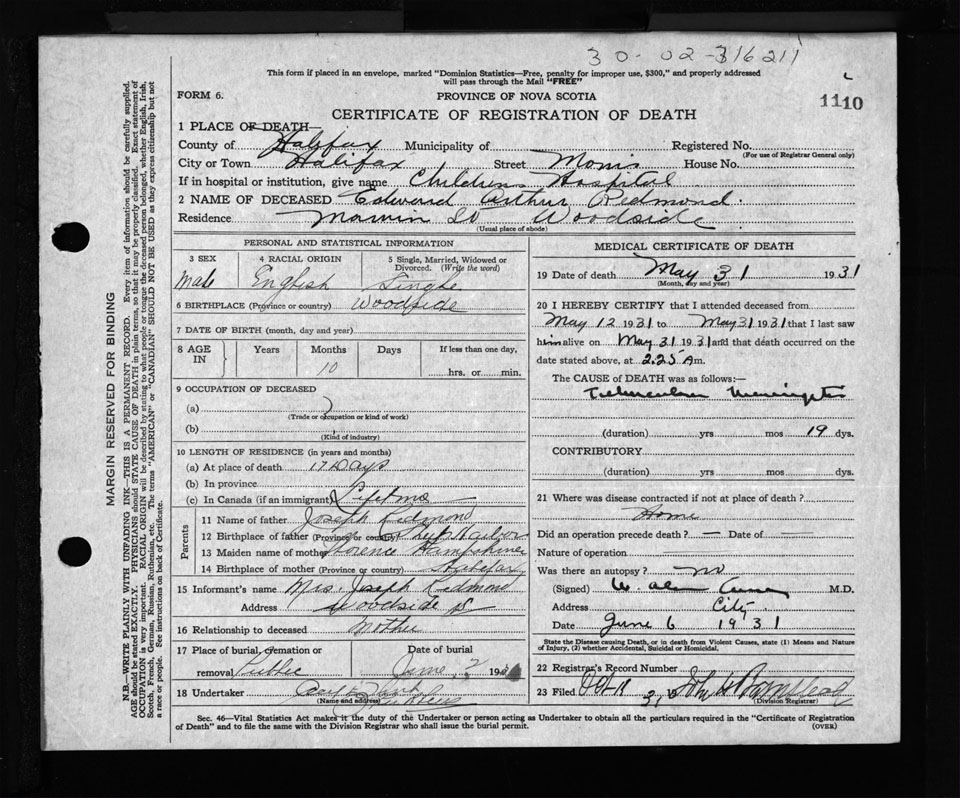 30-02-316211
This form if placed in an envelope, marked "Dominion Statistics—Free, penalty for improper use, $300," and properly addressed
will pass through the Mail "FREE"
FORM 6.
PROVINCE OF NOVA SCOTIA
1110
CERTIFICATE OF REGISTRATION OF DEATH
1 PLACE OF DEATH—
County of Halifax Municipality of Registered No.
(For use of Registrar General only)
City or Town Halifax Street Morris House No.
If in hospital or institution, give name Childrens Hospital
2 NAME OF DECEASED Edward Arthur Redmond
Residence Woodside
(Usual place of abode)
PERSONAL AND STATISTICAL INFORMATION
3 SEX 4 RACIAL ORIGIN 5 Single, Married, Widowed or
Divorced. (Write the word)
Male English Single
6 BIRTHPLACE (Province or country) Woodside
7 DATE OF BIRTH (month, day and year)
8 AGE IN Years Months Days If less than one day,
10
hrs. or min.
9 OCCUPATION OF DECEASED
(a)
(Trade or occupation or kind of work)
(b)
(Kind of industry)
10 LENGTH OF RESIDENCE (in years and months)
(a) At place of death 17 Days
(b) In province
(c) In Canada (if an immigrant) Lifetime
Parents
11 Name of father Joseph Redmond
12 Birthplace of father (Province or country) Ship Harbor
13 Maiden name of mother Florence
14 Birthplace of mother (Province or country) Halifax
15 Informant's name Mrs. Joseph Redmond
Address Woodside
16 Relationship to deceased Mother
17 Place of burial, cremation or Date of burial
removal June 2 193
18 Undertaker
(Name and address)
MEDICAL CERTIFICATE OF DEATH
19 Date of death May 31 1931
(Month, day and year)
20 I HEREBY CERTIFY that I attended deceased from
May 12 1931 to May 31 1931 that I last saw
him alive on May 31 1931 and that death occurred on the
date stated above, at 2.25 Am.
The CAUSE OF DEATH was as follows:—
Tubercular Meningitis
(duration) yrs mos 19 dys.
CONTRIBUTORY
(duration) yrs mos dys.
21 Where was disease contracted if not at place of death?
Home
Did an operation precede death? — Date of —
Nature of operation
Was there an autopsy? no
(Signed) M.D.
Address City
Date June 6 1931
State the Disease causing Death, or in death from Violent Causes, state (1) Means and Nature
of Injury, (2) whether Accidental, Suicidal or Homicidal.
22 Registrar's Record Number
23 Filed
(Division Registrar)
Sec. 46—Vital Statistics Act makes it the duty of the Undertaker or person acting as Undertaker to obtain all the particulars required in the "Certificate of Registration
of Death" and to file the same with the Division Registrar who shall issue the burial permit.
(OVER)
MARGIN RESERVED FOR BINDING
N.B.—WRITE PLAINLY WITH UNFADING INK—THIS IS A PERMANENT RECORD. Every item of information should be carefully supplied.
AGE should be stated EXACTLY. PHYSICIANS should STATE CAUSE OF DEATH in plain terms, so that it may be properly classified. Exact statement of
OCCUPATION is very important. RACIAL ORIGIN will be described by stating to what people or tongue the deceased person belonged, whether English, Irish,
Scotch, French, German, Russian, Ruthenian, etc. The terms "AMERICAN" or "CANADIAN" SHOULD NOT BE USED as they express citizenship but not
a race or people. See instructions on back of Certificate.